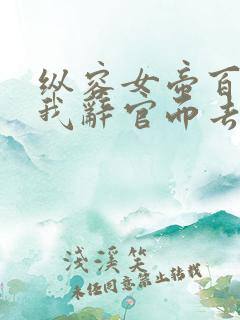 纵容女帝百
我辞官而去
浅溪笑
未经同意禁止转载